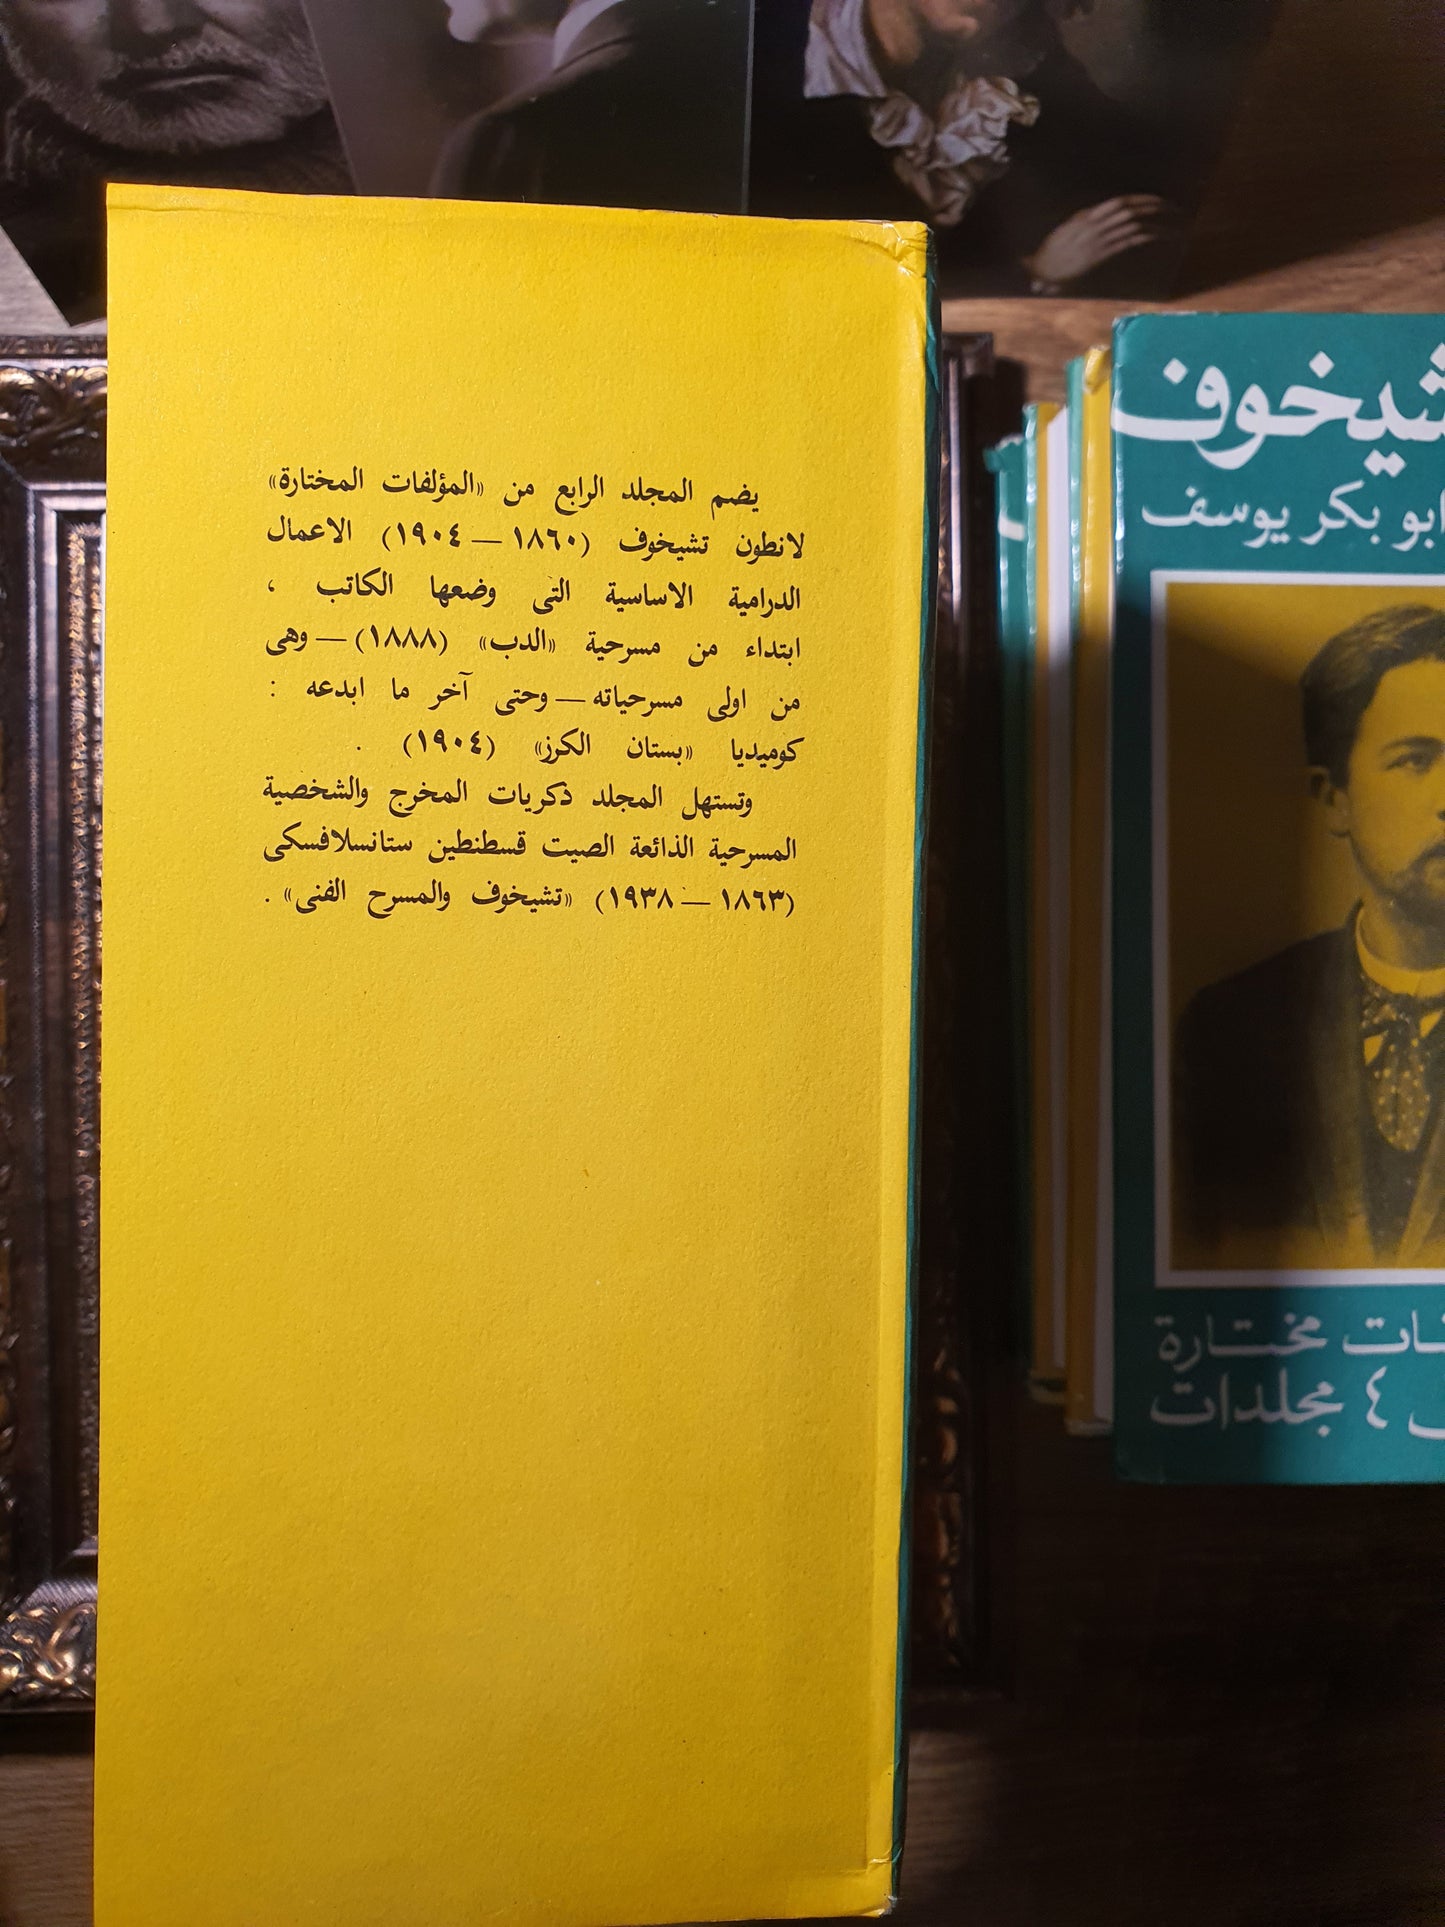 يضم المجلد الرابع من «المؤلفات المختارة»
لانطون تشيخوف (١٨٦٠ — ١٩٠٤) الاعمال
الدرامية الاساسية التى وضعها الكاتب ،
ابتداء من مسرحية «الدب» (١٨٨٨) — وهى
من اولى مسرحياته — وحتى آخر ما ابدعه :
كوميديا «بستان الكرز» (١٩٠٤) .
وتستهل المجلد ذكريات المخرج والشخصية
المسرحية الذائعة الصيت قسطنطين ستانسلافسكى
(١٨٦٣ — ١٩٣٨) «تشيخوف والمسرح الفنى» .
شيخوف
ابو بكر يوسف
مختارة
٤ مجلدات